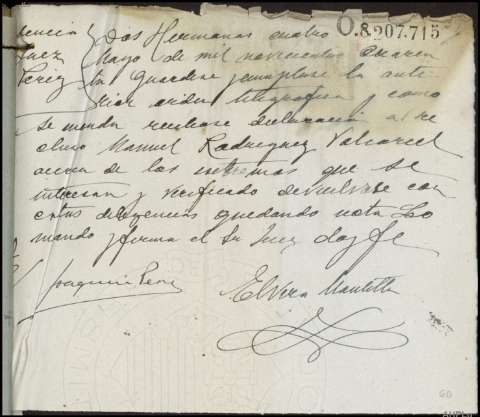 O.8,207,715
dencia } Dos Hermanas cuatro
Juez } Mayo de mil novecientos cuaren
Perez } ta guardese cumplase la ante
rior orden telegrafica y como
se manda recibase declaracion al re
cluso Manuel Rodriguez Valcarcel
acerca de los extremos que se
interesan y verificado devuelvase con
estas diligencias quedando nota Lo
mando y firma el Sr Juez doy fe
Joaquin Perez
60